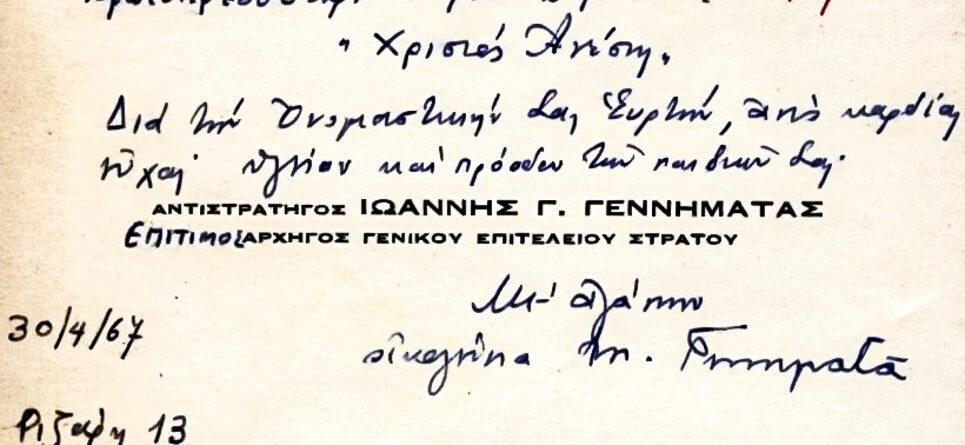 " Χριστός Ἀνέστη "
Διά τήν Ὀνομαστικήν Σας Ἑορτήν, ἀπό καρδίας
εὐχαί ὑγείαν καί πρόοδον τῶν παιδιῶν Σας.
ΑΝΤΙΣΤΡΑΤΗΓΟΣ ΙΩΑΝΝΗΣ Γ. ΓΕΝΝΗΜΑΤΑΣ
ΕΠΙΤΙΜΟΣ ΑΡΧΗΓΟΣ ΓΕΝΙΚΟΥ ΕΠΙΤΕΛΕΙΟΥ ΣΤΡΑΤΟΥ
Μέ ἀγάπην
30/4/67
οἰκογένεια Γεννηματᾶ
Ριζάρη 13